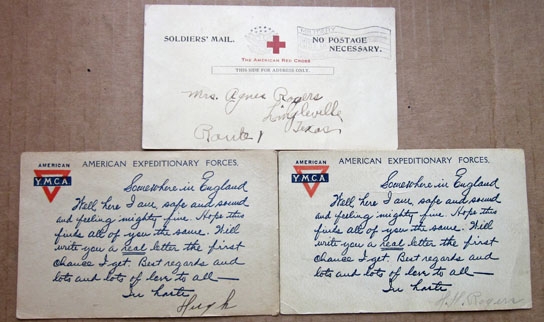 SOLDIERS' MAIL.
NO POSTAGE
NECESSARY.
THE AMERICAN RED CROSS
THIS SIDE FOR ADDRESS ONLY.
Mrs. Agnes Rogers
Lingleville
Route 1
Texas
AMERICAN
YMCA
AMERICAN EXPEDITIONARY FORCES.
Somewhere in England
Well here I am, safe and sound
and feeling mighty fine. Hope this
finds all of you the same. Will
write you a Real letter the first
chance I get. Best regards and
lots and lots of love to all—
In haste
Hugh
AMERICAN
YMCA
AMERICAN EXPEDITIONARY FORCES.
Somewhere in England
Well here I am, safe and sound
and feeling mighty fine. Hope this
finds all of you the same. Will
write you a Real letter the first
chance I get. Best regards and
lots and lots of love to all—
In haste
H.H. Rogers